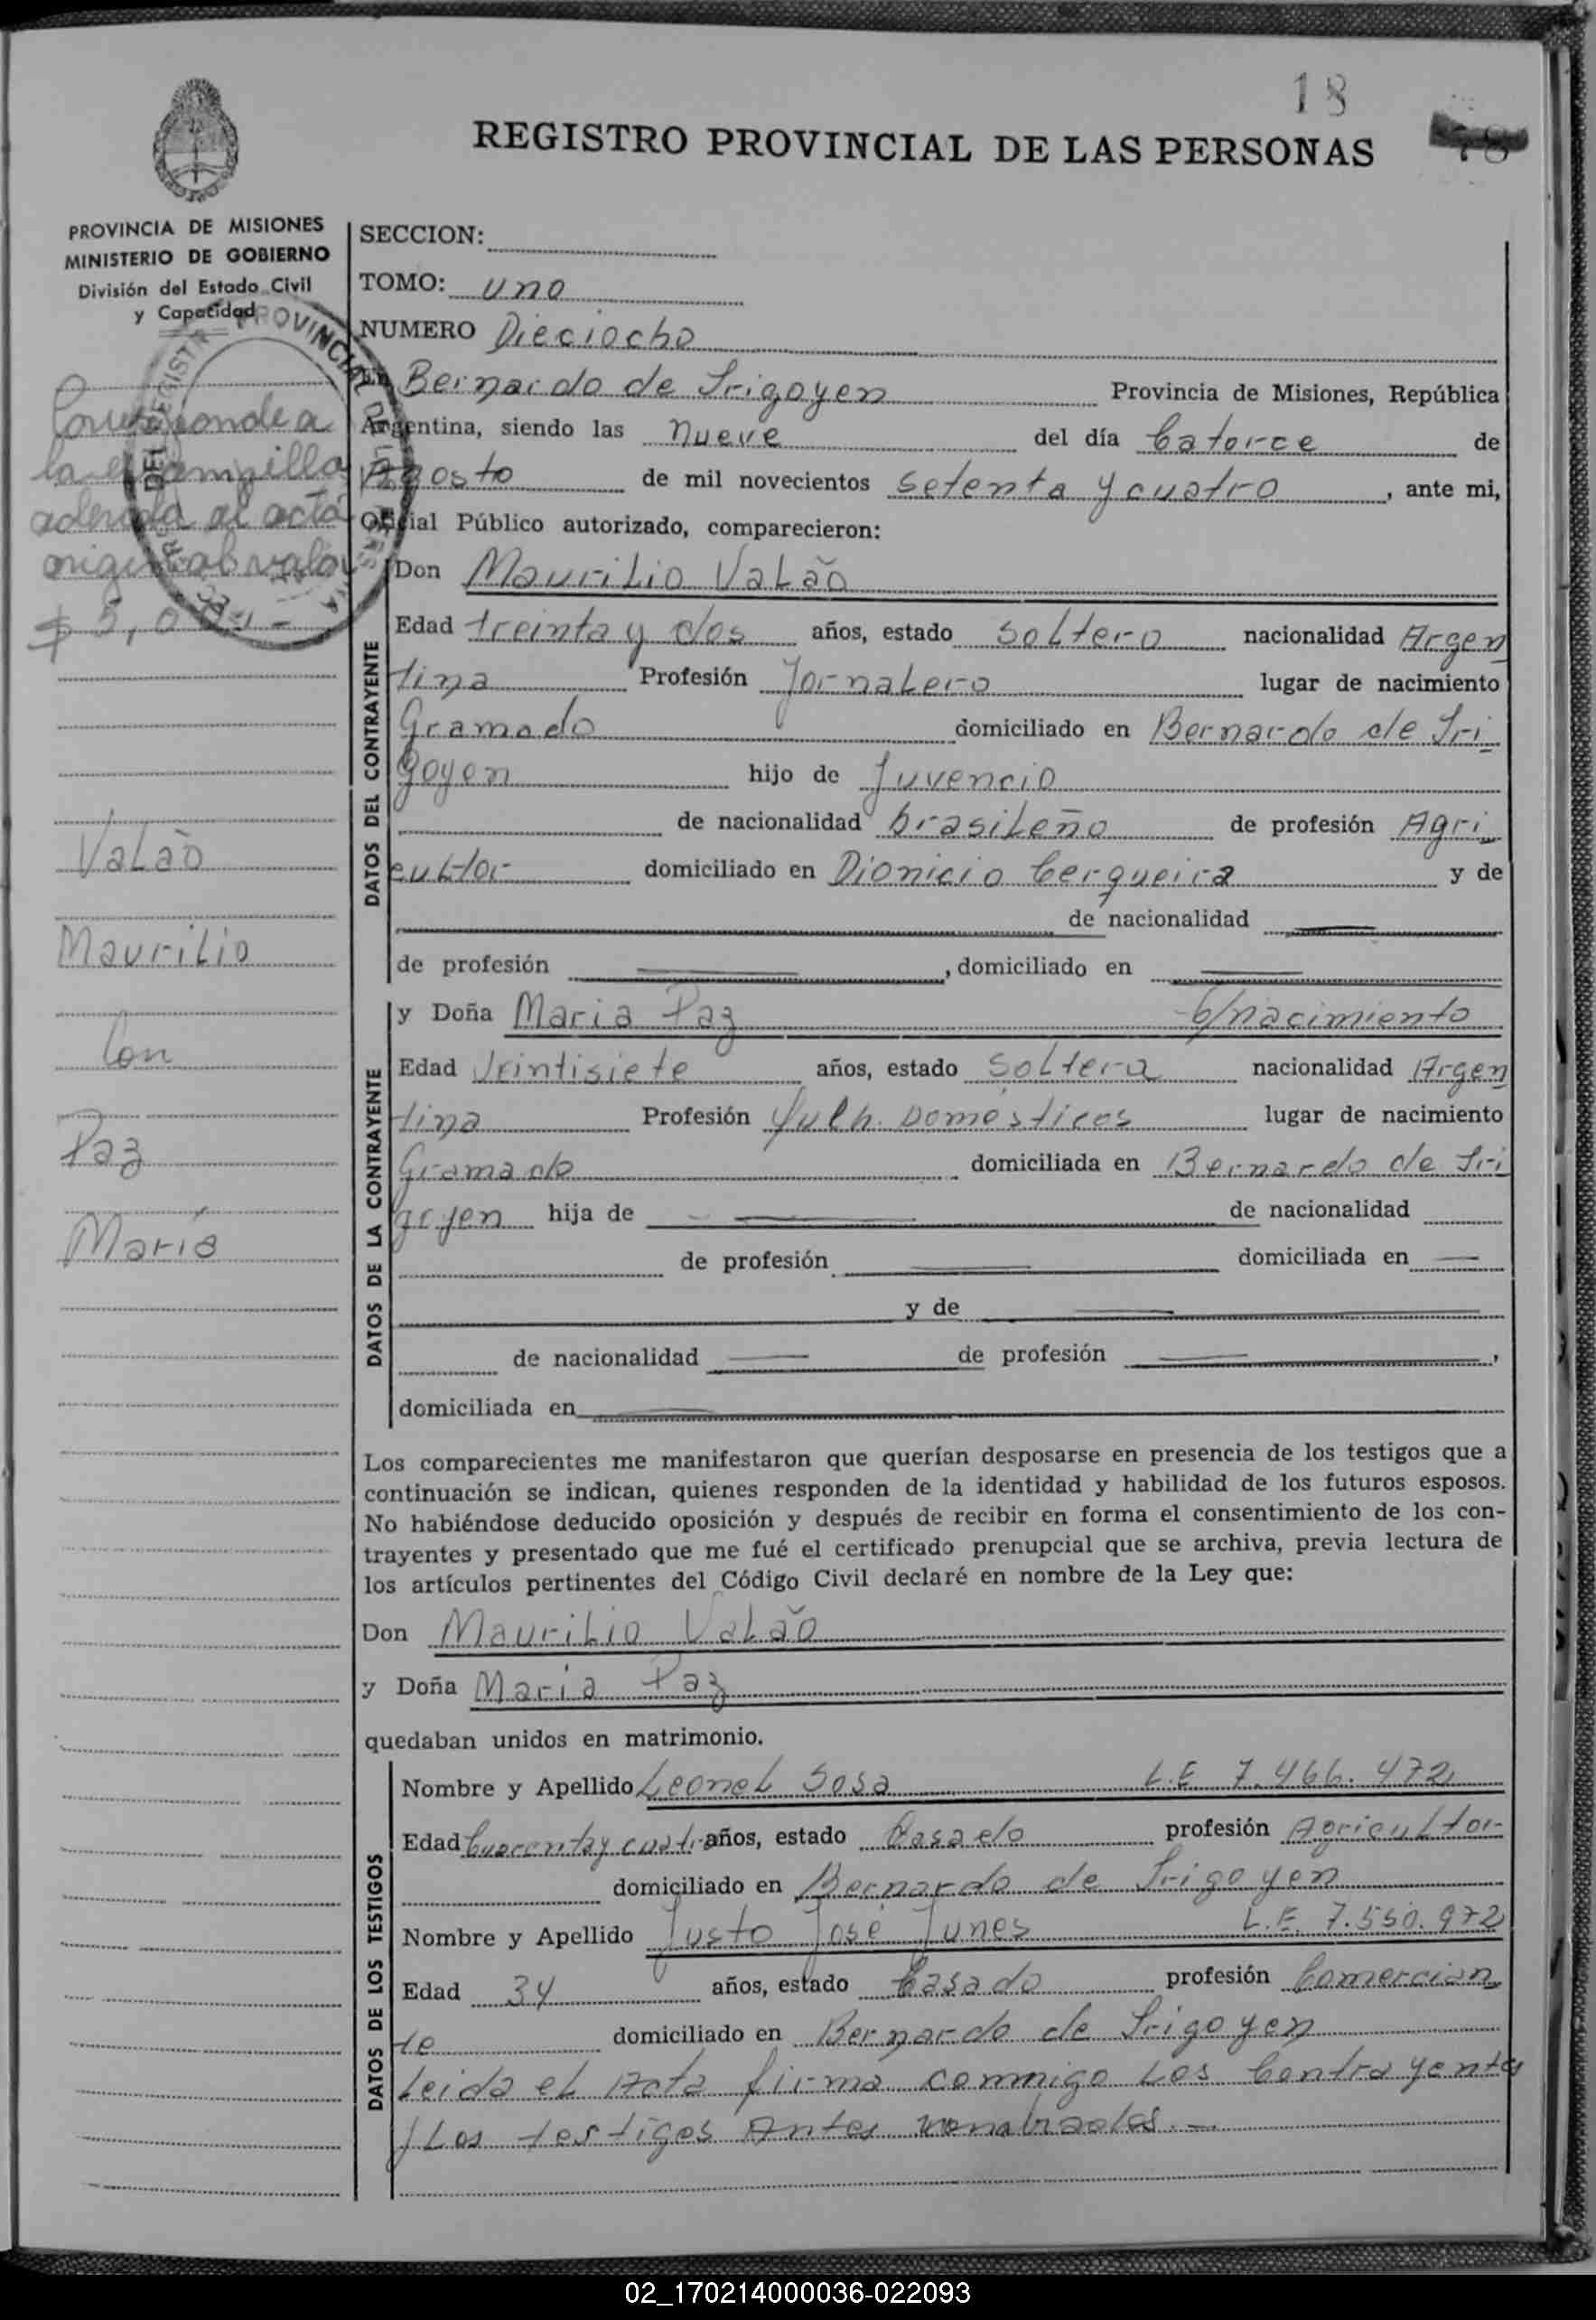 18
REGISTRO PROVINCIAL DE LAS PERSONAS
78
PROVINCIA DE MISIONES
MINISTERIO DE GOBIERNO
División del Estado Civil
y Capacidad
Corresponde a
la estampilla
adherida al acta
original valor
$ 5,00.-
Valão
Maurilio
Con
Paz
María
SECCION:
TOMO: uno
NUMERO Dieciocho
En Bernardo de Irigoyen Provincia de Misiones, República
Argentina, siendo las nueve del día Catorce de
Agosto de mil novecientos setenta y cuatro, ante mi,
Oficial Público autorizado, comparecieron:
DATOS DEL CONTRAYENTE
Don Maurilio Valão
Edad treinta y dos años, estado soltero nacionalidad Argen
tina Profesión Jornalero lugar de nacimiento
Gramado domiciliado en Bernardo de Iri
goyen hijo de Juvencio
de nacionalidad brasileño de profesión Agri
cultor domiciliado en Dionicio Cerqueira y de
de nacionalidad
de profesión , domiciliado en
DATOS DE LA CONTRAYENTE
y Doña Maria Paz nacimiento
Edad Veintisiete años, estado soltera nacionalidad Argen
tina Profesión Domésticos lugar de nacimiento
Gramado domiciliada en Bernardo de Iri
goyen hija de de nacionalidad
de profesión domiciliada en
y de
de nacionalidad de profesión ,
domiciliada en
Los comparecientes me manifestaron que querían desposarse en presencia de los testigos que a
continuación se indican, quienes responden de la identidad y habilidad de los futuros esposos.
No habiéndose deducido oposición y después de recibir en forma el consentimiento de los con-
trayentes y presentado que me fué el certificado prenupcial que se archiva, previa lectura de
los artículos pertinentes del Código Civil declaré en nombre de la Ley que:
Don Maurilio Valão
y Doña Maria Paz
quedaban unidos en matrimonio.
DATOS DE LOS TESTIGOS
Nombre y Apellido Leonel Sosa L.E 7.466.472
Edad Cuarenta y cuatro años, estado Casado profesión Agricultor
domiciliado en Bernardo de Irigoyen
Nombre y Apellido Justo José Junes L.E. 7.550.972
Edad 34 años, estado Casado profesión Comercian
te domiciliado en Bernardo de Irigoyen
Leida el Acta firma conmigo los Contrayentes
y Los testigos Antes nombrados.-
02_170214000036-022093